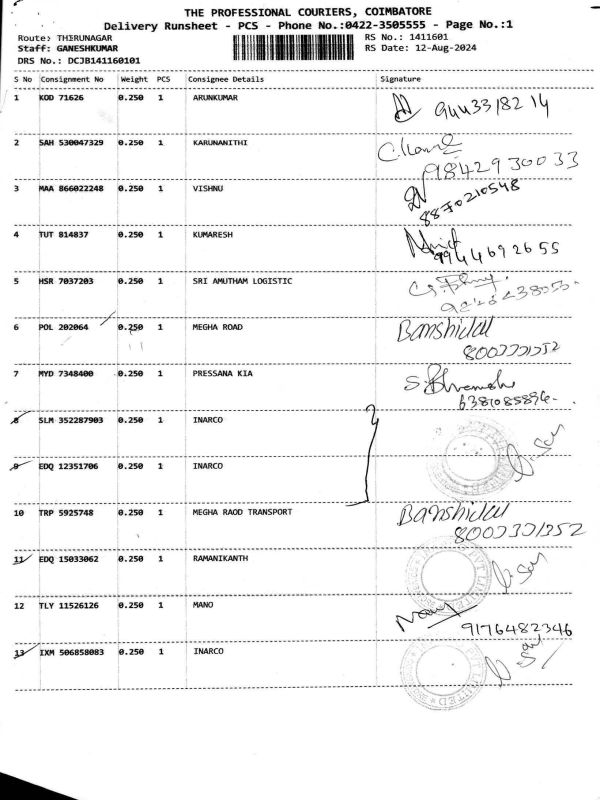 THE PROFESSIONAL COURIERS, COIMBATORE
Delivery Runsheet - PCS - Phone No.:0422-3505555 - Page No.:1
Route: THIRUNAGAR RS No.: 1411601
Staff: GANESHKUMAR RS Date: 12-Aug-2024
DRS No.: DCJB141160101
S No Consignment No Weight PCS Consignee Details Signature
1 KOD 71626 0.250 1 ARUNKUMAR 9443318214
2 SAH 530047329 0.250 1 KARUNANITHI
9842930033
3 MAA 866022248 0.250 1 VISHNU
8870210548
4 TUT 814837 0.250 1 KUMARESH
9944692655
5 HSR 7037203 0.250 1 SRI AMUTHAM LOGISTIC
6 POL 202064 0.250 1 MEGHA ROAD Banshidal
7 MYD 7348400 0.250 1 PRESSANA KIA
6381085896
8 SLM 352287903 0.250 1 INARCO
9 EDQ 12351706 0.250 1 INARCO
10 TRP 5925748 0.250 1 MEGHA RAOD TRANSPORT Banshidal
11 EDQ 15033062 0.250 1 RAMANIKANTH
12 TLY 11526126 0.250 1 MANO Mano
9176482346
13 IXM 506858083 0.250 1 INARCO